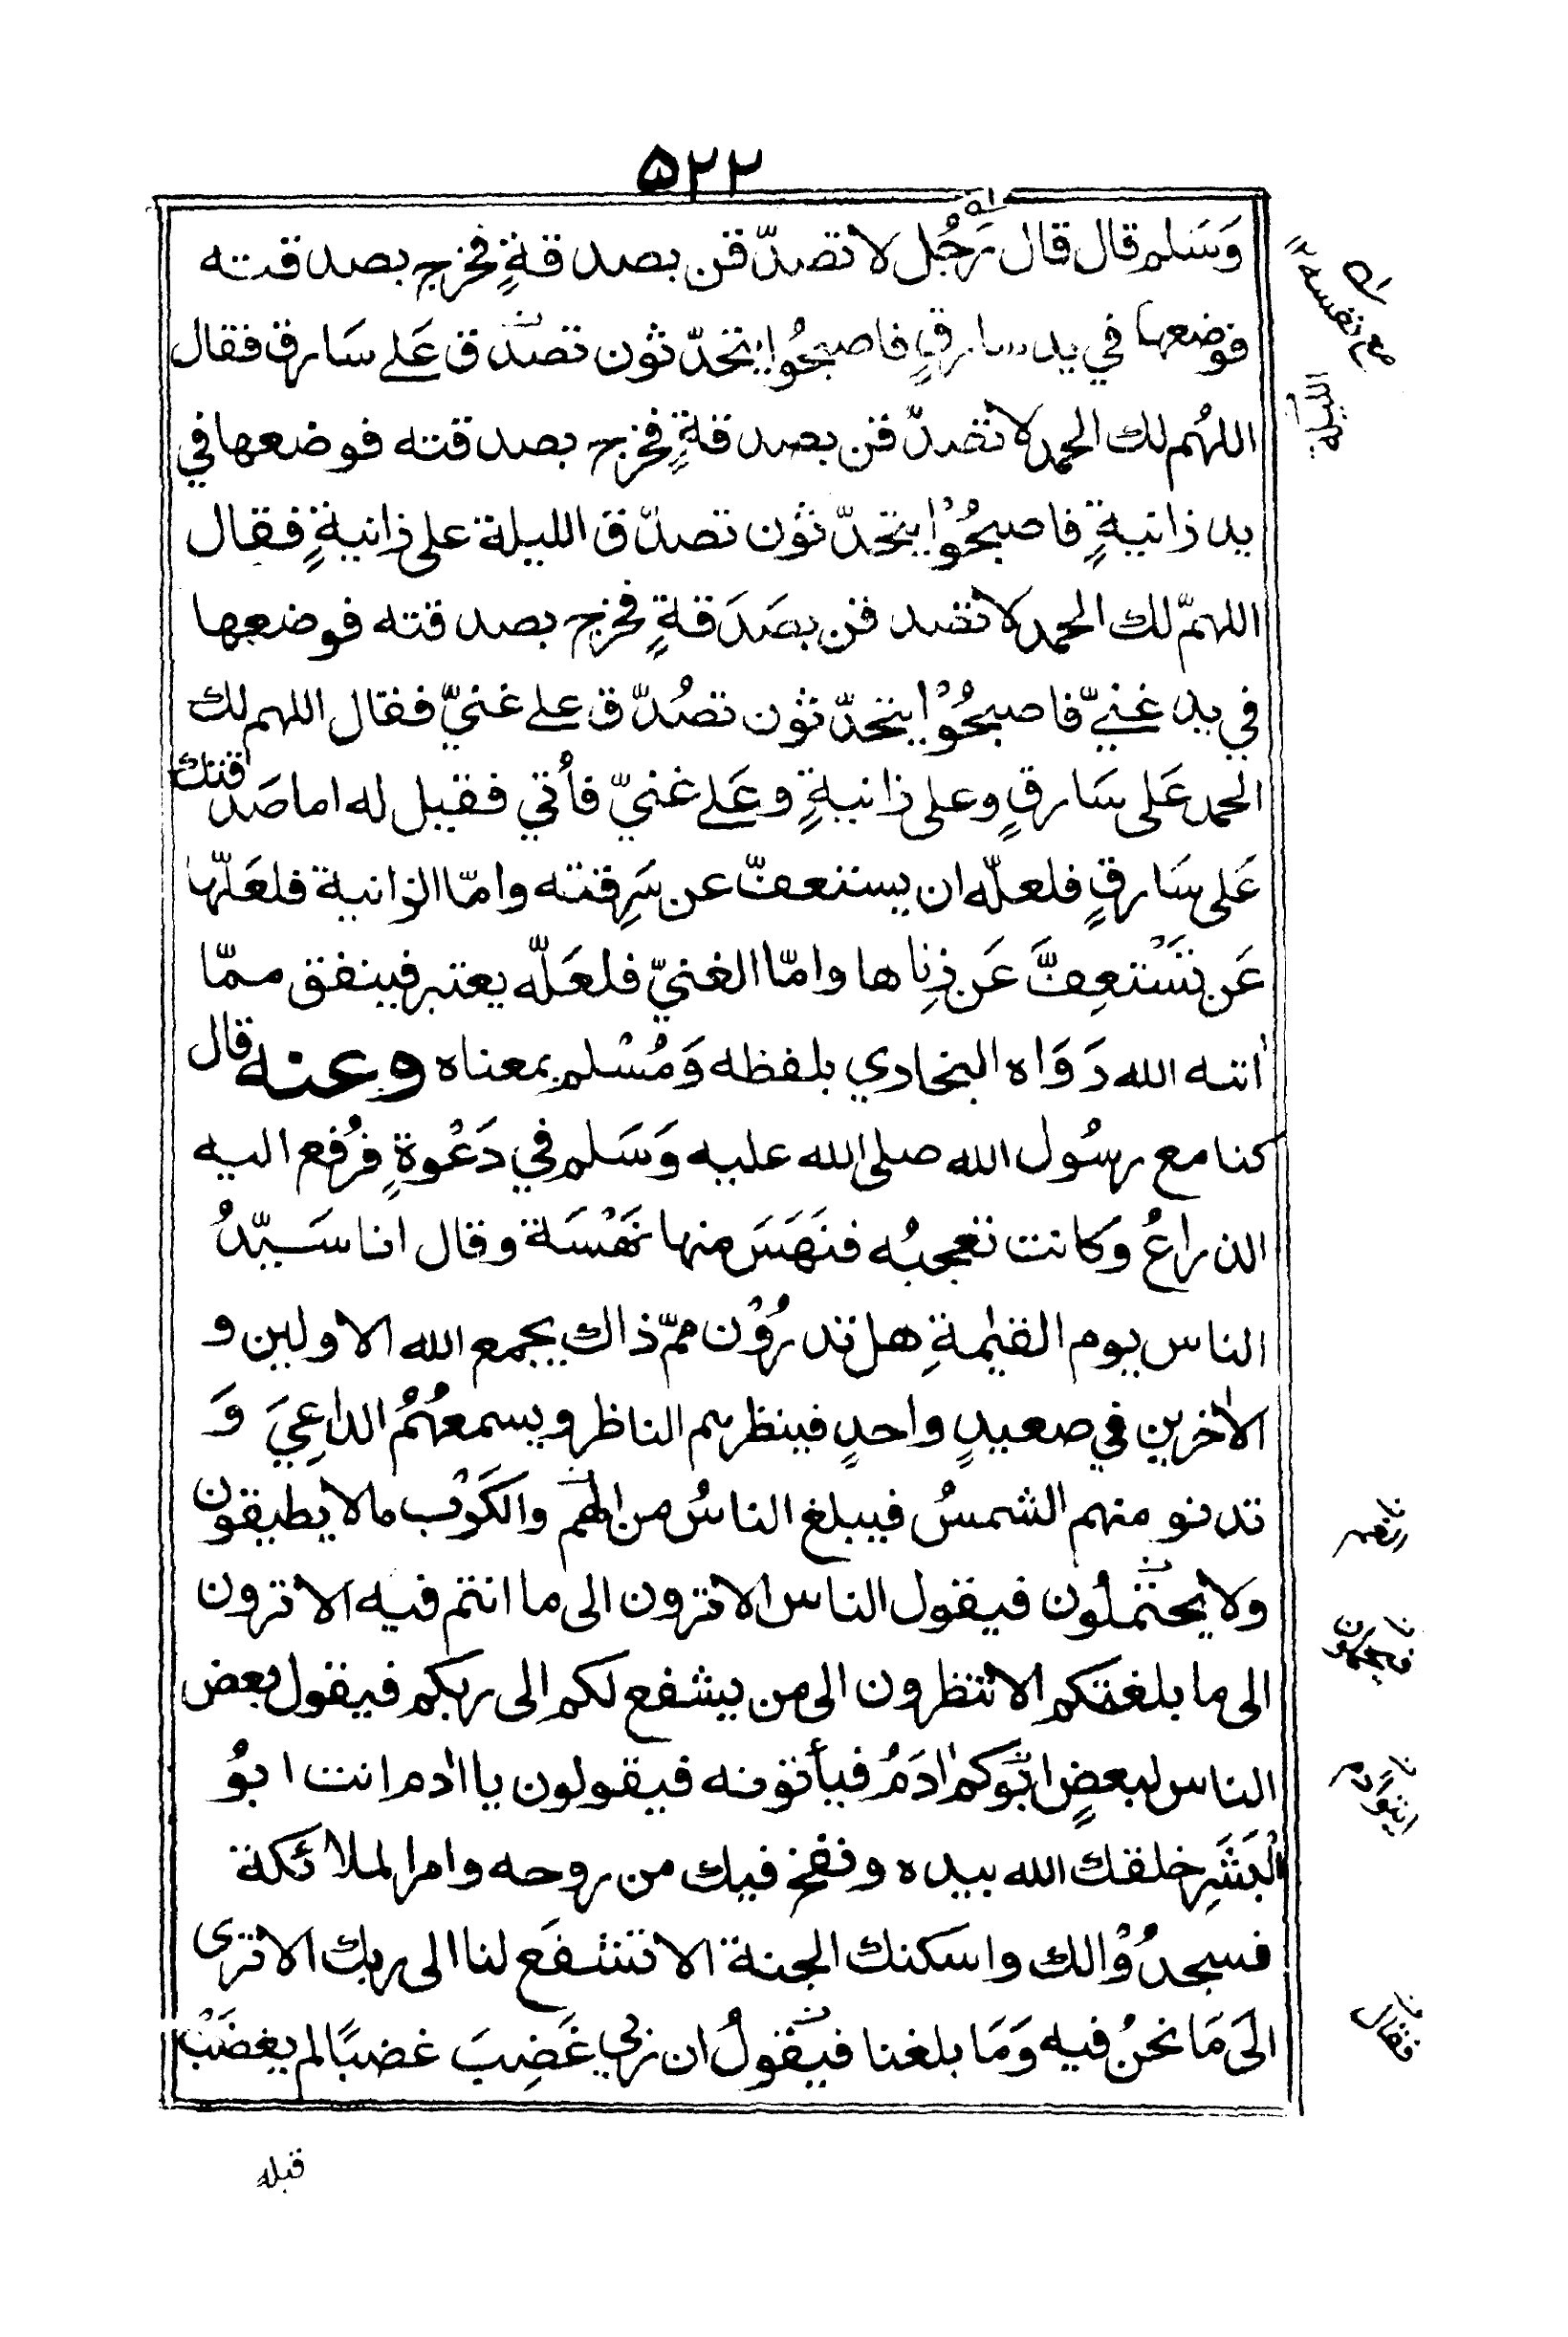 ۵۲۲
وَسَلم قال قال رَجُل لا تصدّقن بصدقةٍ فخرج بصدقته
فوضعها في يد سارقٍ فاصبحُوا يتحدّثون تصدّق عَلے سَارق فقال
اللهُم لك الحمد لا تصدّقن بصدقةٍ فخرج بصدقته فوضعها في
يد زانيةٍ فاصبحُوْا يتحدّثون تصدّق الليلة على زانيةٍ فقال
اللهمّ لك الحمد لا تصدقن بصَدَقةٍ فخرج بصدقته فوضعها
في يد غنيّ فاصبحُوْا يتحدّثون تصُدّق علے غنيّ فقال اللهم لك
الحمد عَلى سَارقٍ وعلى زانيةٍ وعَلے غنيّ فأُتي فقيل له اما صَدقتك
عَلى سَارقٍ فلعلّه ان يستعفّ عن سَرِقته وامّا الزانية فلعَلّها
عَن تَسْتعِفَّ عَن زِناها وامّا الغنيّ فلعَلّه يعتبر فينفق ممّا
اٰته الله رَوَاه البخاري بلفظه وَمُسْلم بمعناه وعنه قال
كنا مع رسُول الله صلى الله عليه وَسَلم في دَعْوةٍ فرُفع اليه
الذراعُ وكانت تعجبُه فنَهَسَ منها نَهْسَة وقال انا سَيّدُ
الناس يوم القيٰمةِ هل تدرُوْن ممّ ذاك يجمع الله الاولين و
الاٰخرين في صعيدٍ واحدٍ فينظرهم الناظر ويسمعهُمُ الداعِيَ وَ
تدنو منهم الشمسُ فيبلغ الناسُ من الهم والكَرْب مالا يطيقون
ولا يحتملُون فيقول الناس الا ترون الى ما انتم فيه الا ترون
الى ما بلغتكم الا تنظرون الى من يشفع لكم الى ربكم فيقول بعض
الناس لبعضٍ ابُوكم اٰدَمُ فيأتونه فيقولون يا اٰدم انت ابوُ
الْبَشَرِ خلقك الله بيده ونفخ فيك من روحه وامر الملائكة
فسجدُوْا لك واسكنك الجنة الا تشفَع لنا الى ربك الا ترى
الَى مَا نحنُ فيه وَمَا بلغنا فيقولُ ان ربي غَضِبَ غضبًا لم يغضَبْ
مع نفسه
الليلة
فقال
قبله